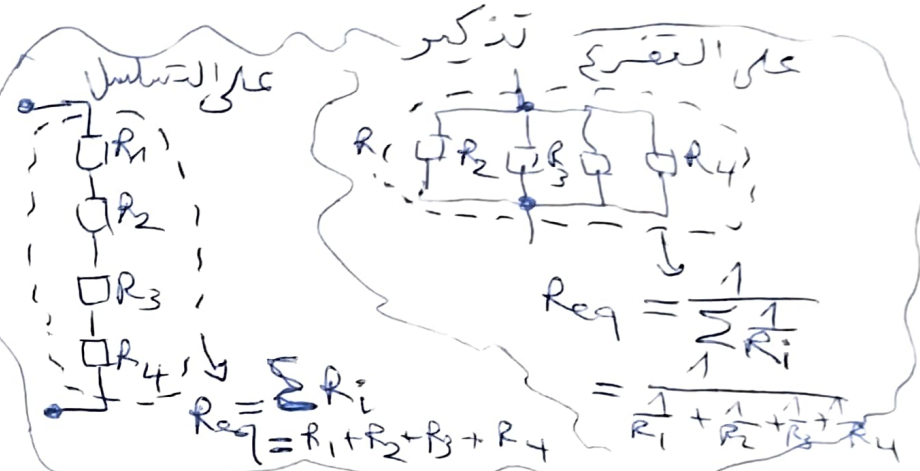 تذكير
على التسلسل
R1
R2
R3
R4
Req = ∑ Ri
= R1 + R2 + R3 + R4
على التفرع
R1 R2 R3 R4
Req = 1 / ∑ 1/Ri
= 1 / 1/R1 + 1/R2 + 1/R3 + 1/R4